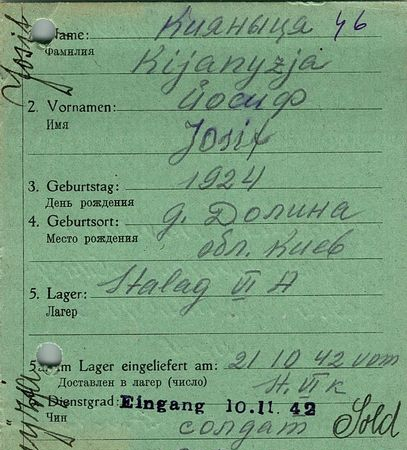 1. Name: Кияныца 46
Фамилия
Kijanyzja
2. Vornamen: Йосиф
Имя
Josif
3. Geburtstag: 1924
День рождения
4. Geburtsort: д. Долина
Место рождения обл. Киев
5. Lager: Stalag VI A
Лагер
5a. Im Lager eingeliefert am: 21 10 42 vom
Доставлен в лагер (число) St. VI K
6. Dienstgrad: Eingang 10. 11. 42
Чин солдат Sold